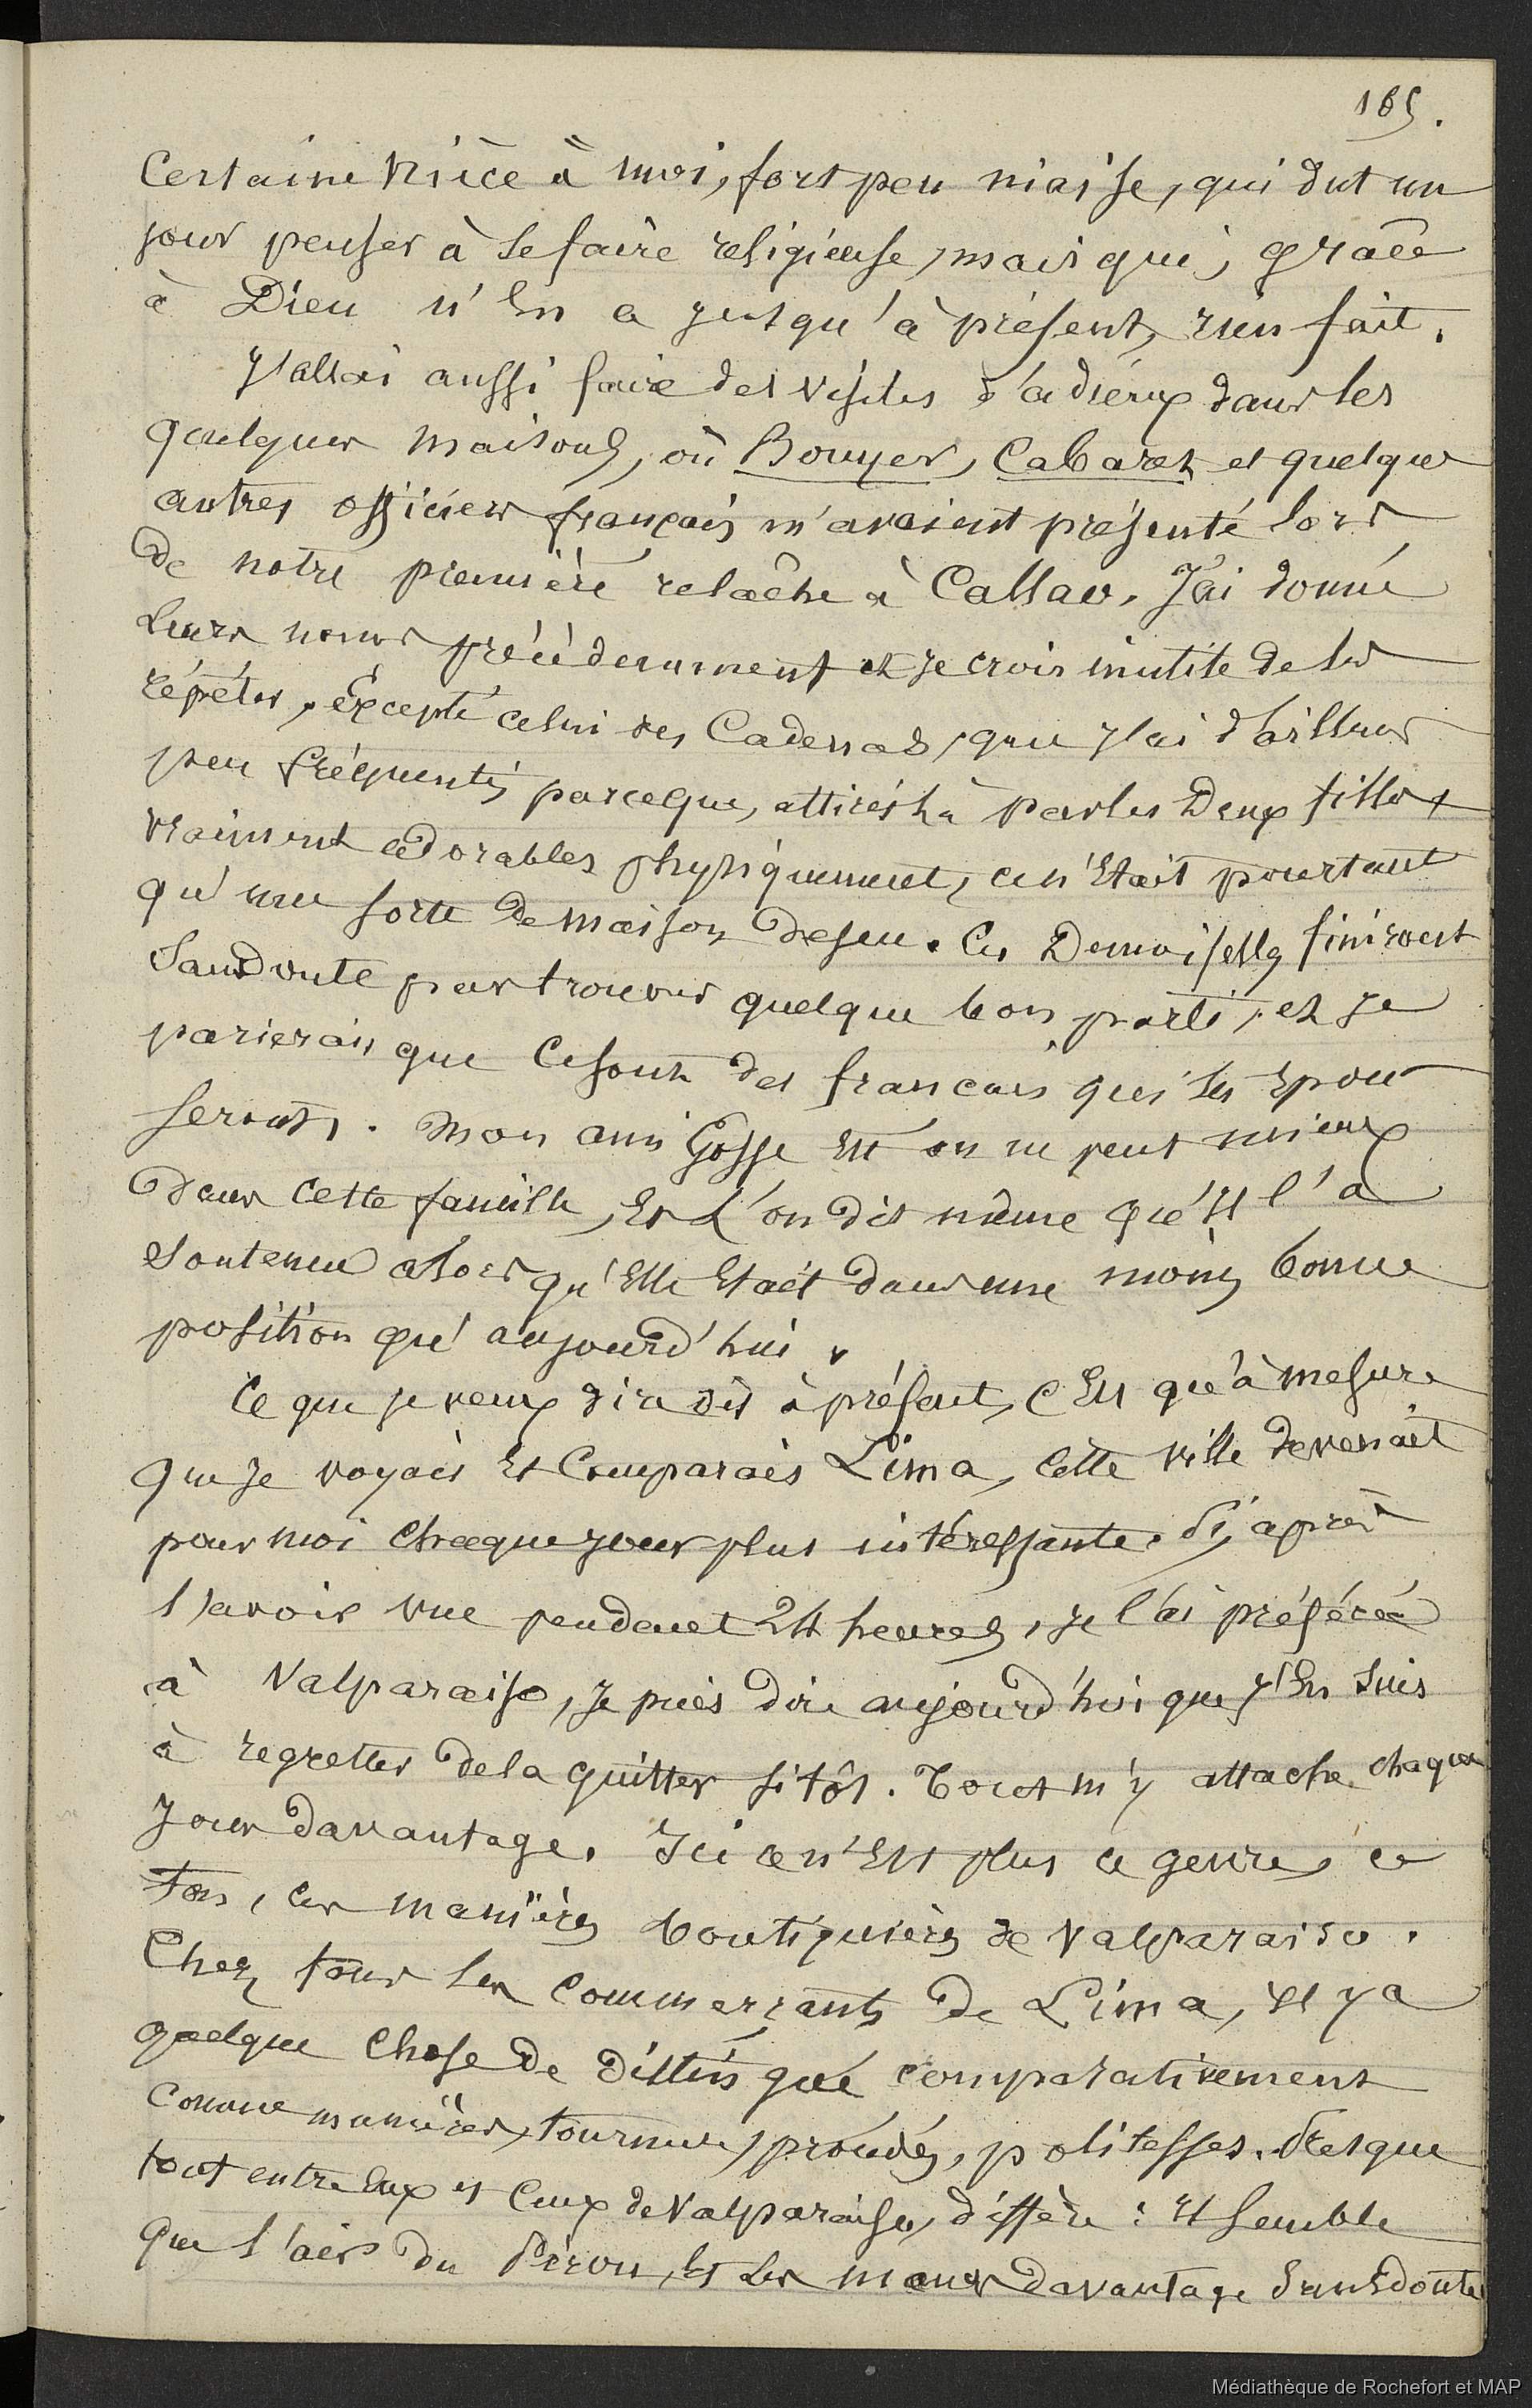 165.
Certaine Nièce à moi, fort peu niaise, qui dut un
jour penser à se faire religieuse, mais qui, grâce
à Dieu n'en a jusqu'à présent, rien fait.
J'allai aussi faire des visites d'adieux dans les
quelques maisons, où Bouyer, Cabaret et quelques
autres officiers français m'avaient présenté lors
de notre première relâche à Callao. J'ai donné
leurs noms précédemment et je crois inutile de les
répéter, excepté celui des Cadenas, que j'ai d'ailleurs
peu fréquentés parceque, attirés là par les deux filles
vraiment adorables physiquement, ce n'était pourtant
qu'une sorte de maison de jeu. Ces Demoiselles finiront
sans doute par trouver quelque bon parti, et je
parierais que ce sont des français qui les épou
seront. Mon ami Gosse est on ne peut mieux
dans cette famille, et l'on dit même qu'il l'a
soutenue alors qu'elle était dans une moins bonne
position qu'aujourd'hui.
Ce que je veux dire dès à présent, c'est qu'à mesure
que je voyais et comparais Lima, cette ville devenait
pour moi chaque jour plus intéressante. Si, après
l'avoir vue pendant 24 heures, je l'ai préférée
à Valparaiso, je puis dire aujourd'hui que j'en suis
à regretter de la quitter sitôt. Tout m'y attache chaque
jour davantage. Ici ce n'est plus ce genre, ce
ton, ces manières boutiquières de Valparaiso.
Chez tous les commerçants de Lima, il y a
quelque chose de distingué comparativement
comme manières, tournure, procédés, politesses. Presque
tout entre eux et ceux de Valparaiso, diffère : il semble
que l'air du Pérou, et les mœurs davantage sans doute
Médiathèque de Rochefort et MAP